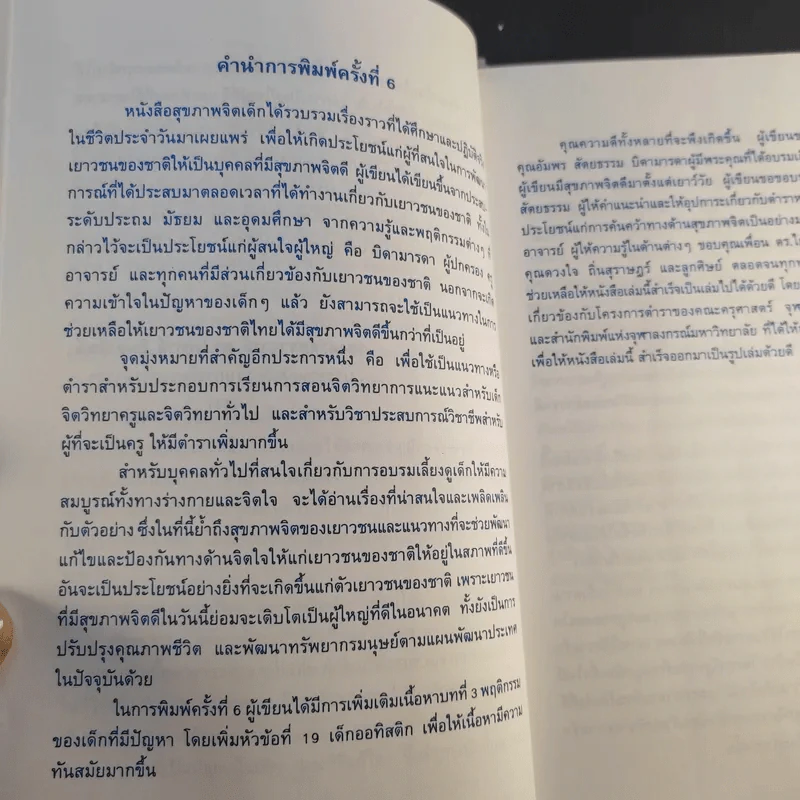 คำนำการพิมพ์ครั้งที่ 6
หนังสือสุขภาพจิตเด็กได้รวบรวมเรื่องราวที่ได้ศึกษาและปฏิบัติจริง
ในชีวิตประจำวันมาเผยแพร่ เพื่อให้เกิดประโยชน์แก่ผู้ที่สนใจในการพัฒนา
เยาวชนของชาติให้เป็นบุคคลที่มีสุขภาพจิตดี ผู้เขียนได้เขียนขึ้นจากประสบ
การณ์ที่ได้ประสบมาตลอดเวลาที่ได้ทำงานเกี่ยวกับเยาวชนของชาติ ทั้งใน
ระดับประถม มัธยม และอุดมศึกษา จากความรู้และพฤติกรรมต่างๆ ที่
กล่าวไว้จะเป็นประโยชน์แก่ผู้สนใจผู้ใหญ่ คือ บิดามารดา ผู้ปกครอง ครู
อาจารย์ และทุกคนที่มีส่วนเกี่ยวข้องกับเยาวชนของชาติ นอกจากจะเกิด
ความเข้าใจในปัญหาของเด็กๆ แล้ว ยังสามารถจะใช้เป็นแนวทางในการ
ช่วยเหลือให้เยาวชนของชาติไทยได้มีสุขภาพจิตดีขึ้นกว่าที่เป็นอยู่
จุดมุ่งหมายที่สำคัญอีกประการหนึ่ง คือ เพื่อใช้เป็นแนวทางหรือ
ตำราสำหรับประกอบการเรียนการสอนจิตวิทยาการแนะแนวสำหรับเด็ก
จิตวิทยาครูและจิตวิทยาทั่วไป และสำหรับวิชาประสบการณ์วิชาชีพสำหรับ
ผู้ที่จะเป็นครู ให้มีตำราเพิ่มมากขึ้น
สำหรับบุคคลทั่วไปที่สนใจเกี่ยวกับการอบรมเลี้ยงดูเด็กให้มีความ
สมบูรณ์ทั้งทางร่างกายและจิตใจ จะได้อ่านเรื่องที่น่าสนใจและเพลิดเพลิน
กับตัวอย่าง ซึ่งในที่นี้ย้ำถึงสุขภาพจิตของเยาวชนและแนวทางที่จะช่วยพัฒนา
แก้ไขและป้องกันทางด้านจิตใจให้แก่เยาวชนของชาติให้อยู่ในสภาพที่ดีขึ้น
อันจะเป็นประโยชน์อย่างยิ่งที่จะเกิดขึ้นแก่ตัวเยาวชนของชาติ เพราะเยาวชน
ที่มีสุขภาพจิตดีในวันนี้ย่อมจะเติบโตเป็นผู้ใหญ่ที่ดีในอนาคต ทั้งยังเป็นการ
ปรับปรุงคุณภาพชีวิต และพัฒนาทรัพยากรมนุษย์ตามแผนพัฒนาประเทศ
ในปัจจุบันด้วย
ในการพิมพ์ครั้งที่ 6 ผู้เขียนได้มีการเพิ่มเติมเนื้อหาบทที่ 3 พฤติกรรม
ของเด็กที่มีปัญหา โดยเพิ่มหัวข้อที่ 19 เด็กออทิสติก เพื่อให้เนื้อหามีความ
ทันสมัยมากขึ้น
คุณความดีทั้งหลายที่จะพึงเกิดขึ้น ผู้เขียน
คุณอัมพร สัตยธรรม บิดามารดาผู้มีพระคุณที่ได้อบรม
ผู้เขียนมีสุขภาพจิตดีมาตั้งแต่เยาว์วัย ผู้เขียนขอขอบ
สัตยธรรม ผู้ให้คำแนะนำและให้อุปการะเกี่ยวกับตำรา
ประโยชน์แก่การค้นคว้าทางด้านสุขภาพจิตเป็นอย่าง
อาจารย์ ผู้ให้ความรู้ในด้านต่างๆ ขอบคุณเพื่อน ดร.
คุณดวงใจ ถิ่นสุราษฎร์ และลูกศิษย์ ตลอดจนทุก
ช่วยเหลือให้หนังสือเล่มนี้สำเร็จเป็นเล่มไปได้ด้วยดี โดย
เกี่ยวข้องกับโครงการตำราของคณะครุศาสตร์ จุฬ
และสำนักพิมพ์แห่งจุฬาลงกรณ์มหาวิทยาลัย ที่ได้ให้
เพื่อให้หนังสือเล่มนี้ สำเร็จออกมาเป็นรูปเล่มด้วยดี